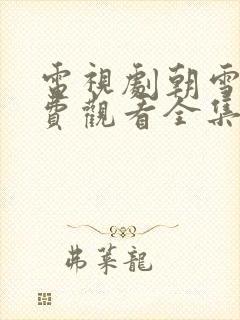 電視劇朝雪
費觀看全集
弗萊龍